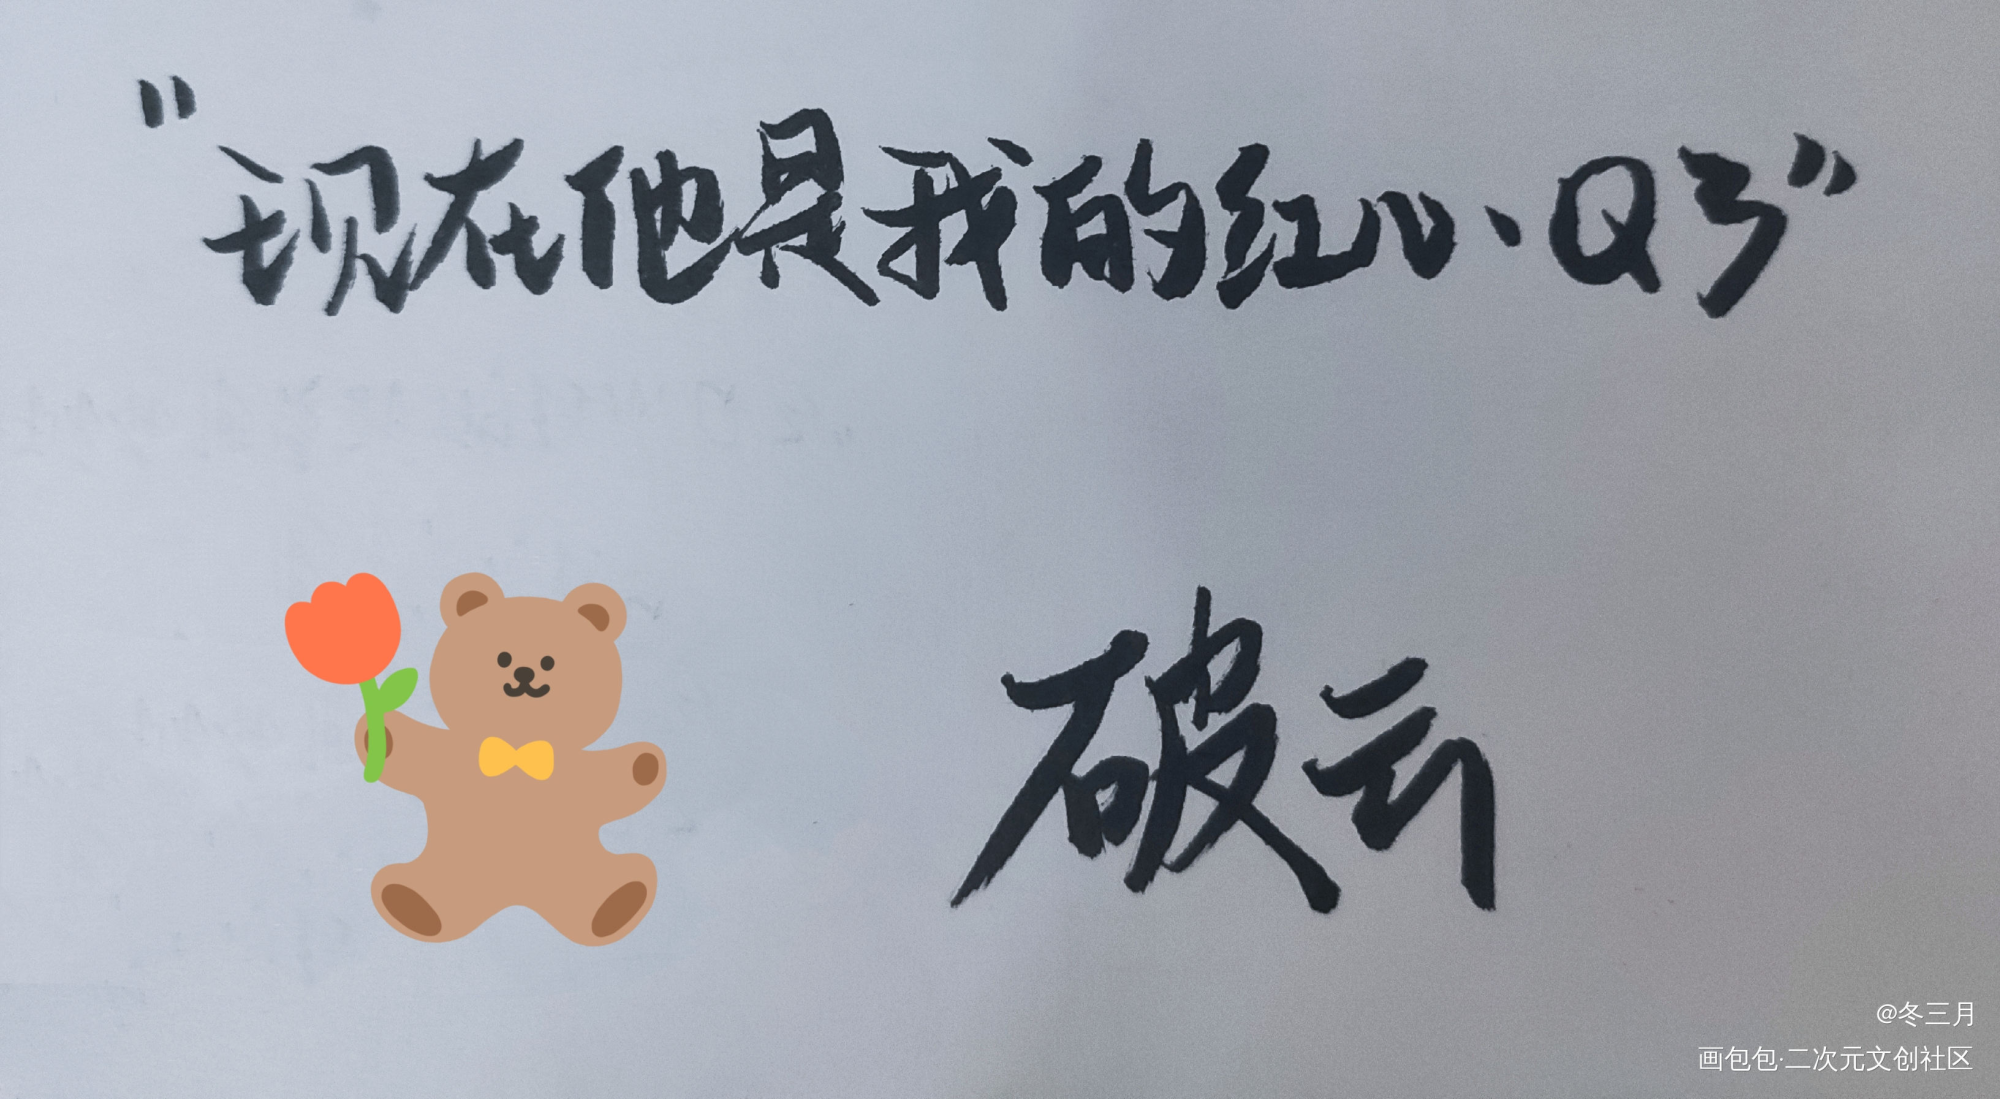 "现在他是我的红心·Q了"
破云
@冬三月
画包包·二次元文创社区